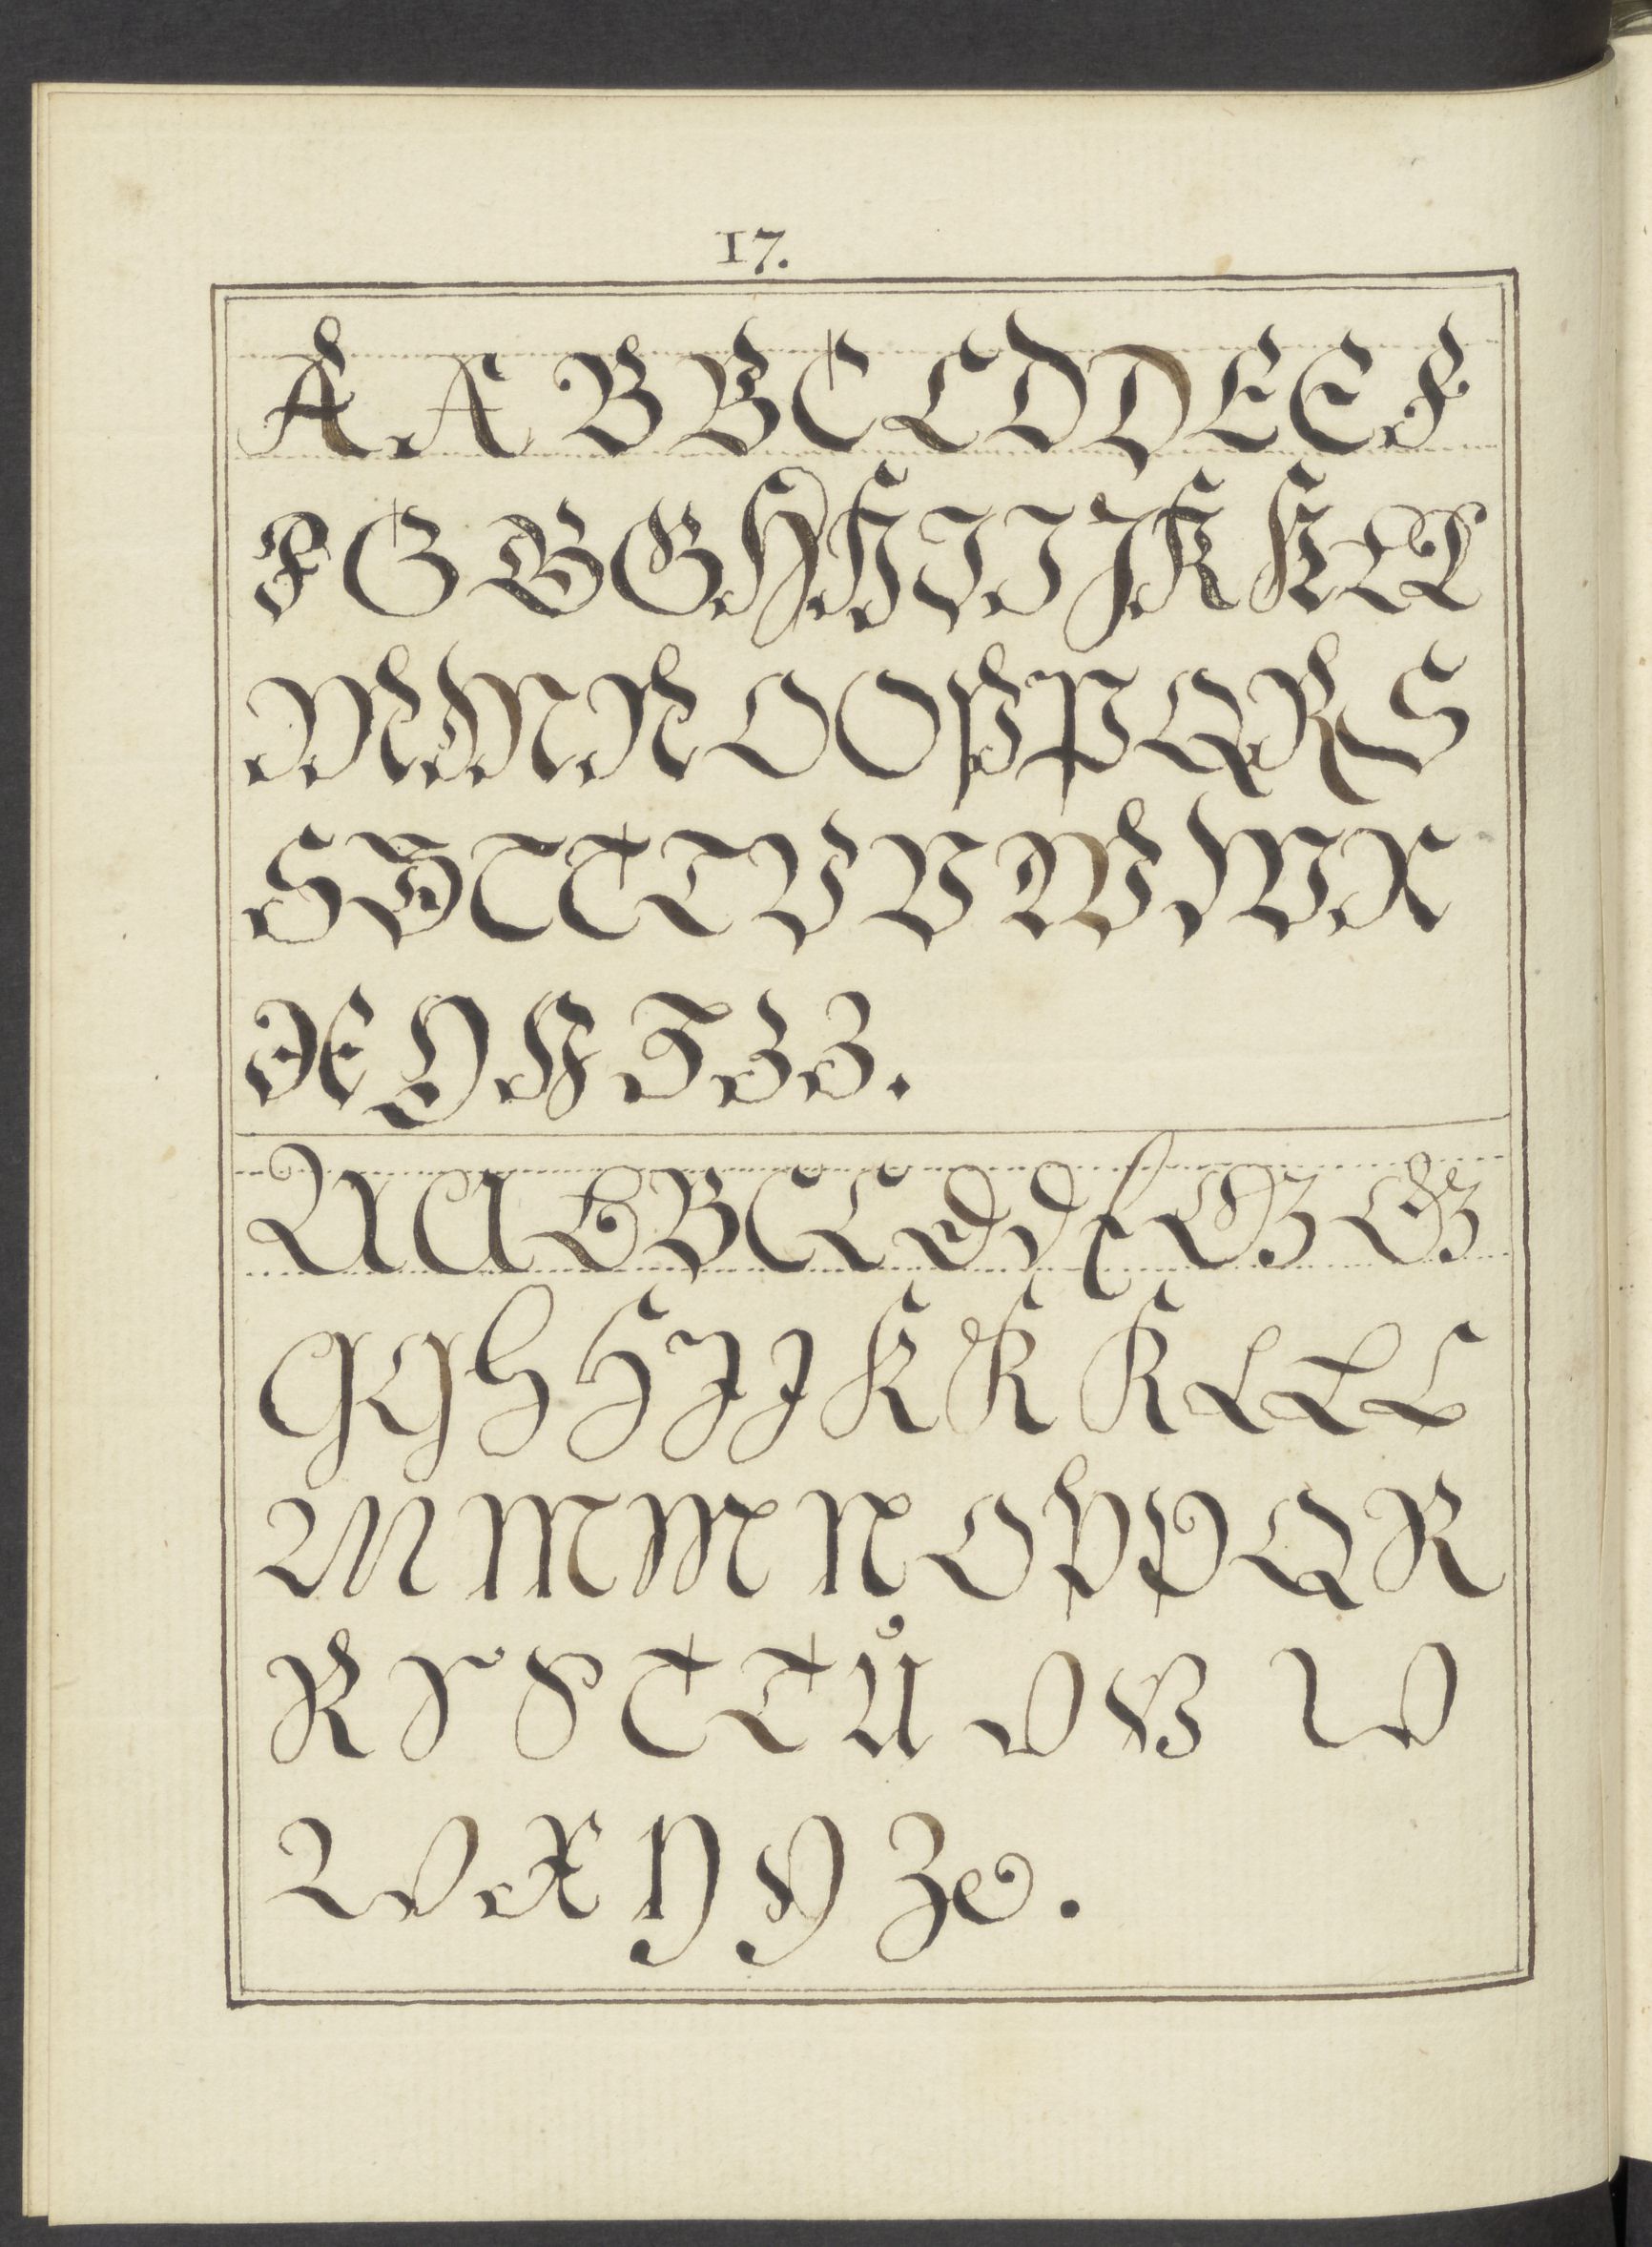 17.
A A B B C C D D E E F
F G G G H H I I J K K L L
M M N O O P P Q R S
S T T T T V V W W X
X Y Y Z Z Z.
A A B B C C D D E G G
G G H H I I K K K L L L
M M M N O P P Q R
R S S T T Ů V V W
W X Y Y Z &.